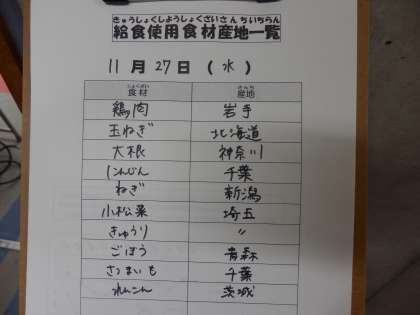 きゅうしょくしようしょくざいさんちいちらん
給食使用食材産地一覧
11月27日(水)
しょくざい さんち
食材 産地
鶏肉 岩手
玉ねぎ 北海道
大根 神奈川
にんじん 千葉
ねぎ 新潟
小松菜 埼玉
きゅうり 〃
ごぼう 青森
さつまいも 千葉
れんこん 茨城